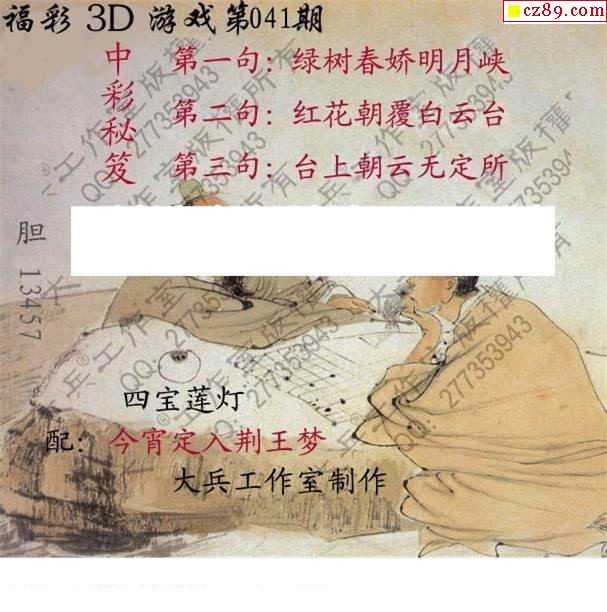 福彩 3D 游戏第041期
cz89.com
中彩秘笈
第一句：绿树春娇明月峡
第二句：红花朝覆白云台
第三句：台上朝云无定所
胆 13457
四宝莲灯
配：今宵定入荆王梦
大兵工作室制作
大兵工作室版权所有
QQ: 277353943